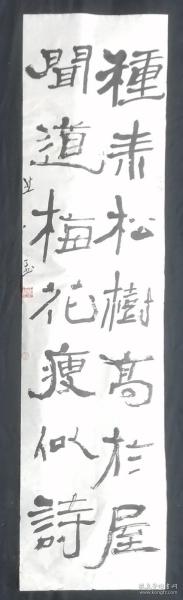 種来松樹高於屋
聞道梅花瘦似詩